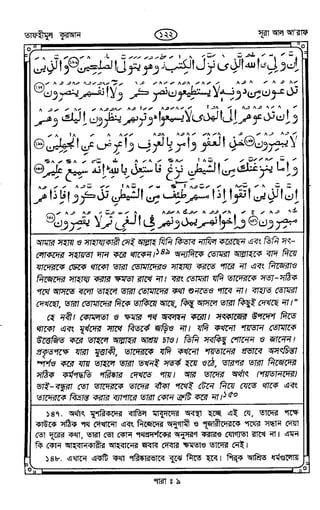 তাফহীমুল কুরআন
১২২
সূরা আল আ'রাফ
إِنَّ وَلِيِّ ىَ اللهُ الَّذِى نَزَّلَ الْكِتٰبَ وَهُوَ يَتَوَلَّى الصّٰلِحِيْنَ وَالَّذِيْنَ
تَدْعُوْنَ مِنْ دُوْنِهٖ لَا يَسْتَطِيْعُوْنَ نَصْرَكُمْ وَلَا أَنْفُسَهُمْ يَنْصُرُوْنَ
وَإِنْ تَدْعُوْهُمْ إِلَى الْهُدٰى لَا يَسْمَعُوْا وَتَرٰىهُمْ يَنْظُرُوْنَ إِلَيْكَ وَهُمْ
لَا يُبْصِرُوْنَ خُذِ الْعَفْوَ وَأْمُرْ بِالْعُرْفِ وَأَعْرِضْ عَنِ الْجٰهِلِيْنَ
وَإِمَّا يَنْزَغَنَّكَ مِنَ الشَّيْطٰنِ نَزْغٌ فَاسْتَعِذْ بِاللهِ إِنَّهٗ سَمِيْعٌ عَلِيْمٌ
إِنَّ الَّذِيْنَ اتَّقَوْا إِذَا مَسَّهُمْ طٰئِفٌ مِّنَ الشَّيْطٰنِ تَذَكَّرُوْا فَإِذَا هُمْ
مُّبْصِرُوْنَ وَإِخْوَانُهُمْ يَمُدُّوْنَهُمْ فِى الْغَيِّ ثُمَّ لَا يُقْصِرُوْنَ
আমার সহায় ও সাহায্যকারী সেই আল্লাহ যিনি কিতাব নাযিল করেছেন এবং তিনি সৎ-
লোকদের সহায়তা দান করে থাকেন।১৪৯ অন্যদিকে তোমরা আল্লাহকে বাদ দিয়ে
যাদেরকে ডেকে থাকো তারা তোমাদেরও সাহায্য করতে পারে না এবং নিজেরাও
নিজেদের সাহায্য করার ক্ষমতা রাখে না। বরং তোমরা যদি তাদেরকে সত্য-সঠিক
পথে আসতে বলো তাহলে তারা তোমাদের কথা শুনতেও পাবে না। বাহ্যত তোমরা
দেখছো, তারা তোমাদের দিকে তাকিয়ে আছে, কিন্তু আসলে তারা কিছুই দেখছে না।"
হে নবী। কোমলতা ও ক্ষমার পথ অবলম্বন করো। সৎকাজের উপদেশ দিতে
থাকো এবং মূর্খদের সাথে বিতর্কে জড়িও না। যদি কখনো শয়তান তোমাকে
উত্তেজিত করে তাহলে আল্লাহর আশ্রয় চাও। তিনি সবকিছু শোনেন ও জানেন।
প্রকৃতপক্ষে যারা মুত্তাকী, তাদেরকে যদি কখনো শয়তানের প্রভাবে অসৎচিন্তা
স্পর্শও করে যায় তাহলে তারা তখনই সতর্ক হয়ে ওঠে, তারপর তারা নিজেদের
সঠিক কর্মপদ্ধতি পরিষ্কার দেখতে পায়। আর তাদের অর্থাৎ (শয়তানদের)
ভাই-বন্ধুরা তো তাদেরকে তাদের বাঁকা পথেই টেনে নিয়ে যেতে থাকে এবং
তাদেরকে বিভ্রান্ত করার ব্যাপারে তারা কোন ত্রুটি করে না।১৫০
১৪৭. অর্থাৎ মুশরিকদের বাতিল মাবুদদের অবস্থা হচ্ছে এই যে, তাদের পক্ষে
কাউকে সঠিক পথ দেখানো এবং নিজেদের অনুগামী ও পূজারীদেরকে পথের সন্ধান দেয়া
তো দূরের কথা, তারা তো কোন পথপ্রদর্শকের অনুসরণ করারও যোগ্যতা রাখে না। এমন
কি কোন আহবানকারীর আহবানের জবাব দেবার ক্ষমতাও তাদের নেই।
১৪৮. এখানে একটি কথা পরিষ্কারভাবে বুঝে নিতে হবে। শিরক আশ্রিত ধর্মগুলোয়
পারা : ৯